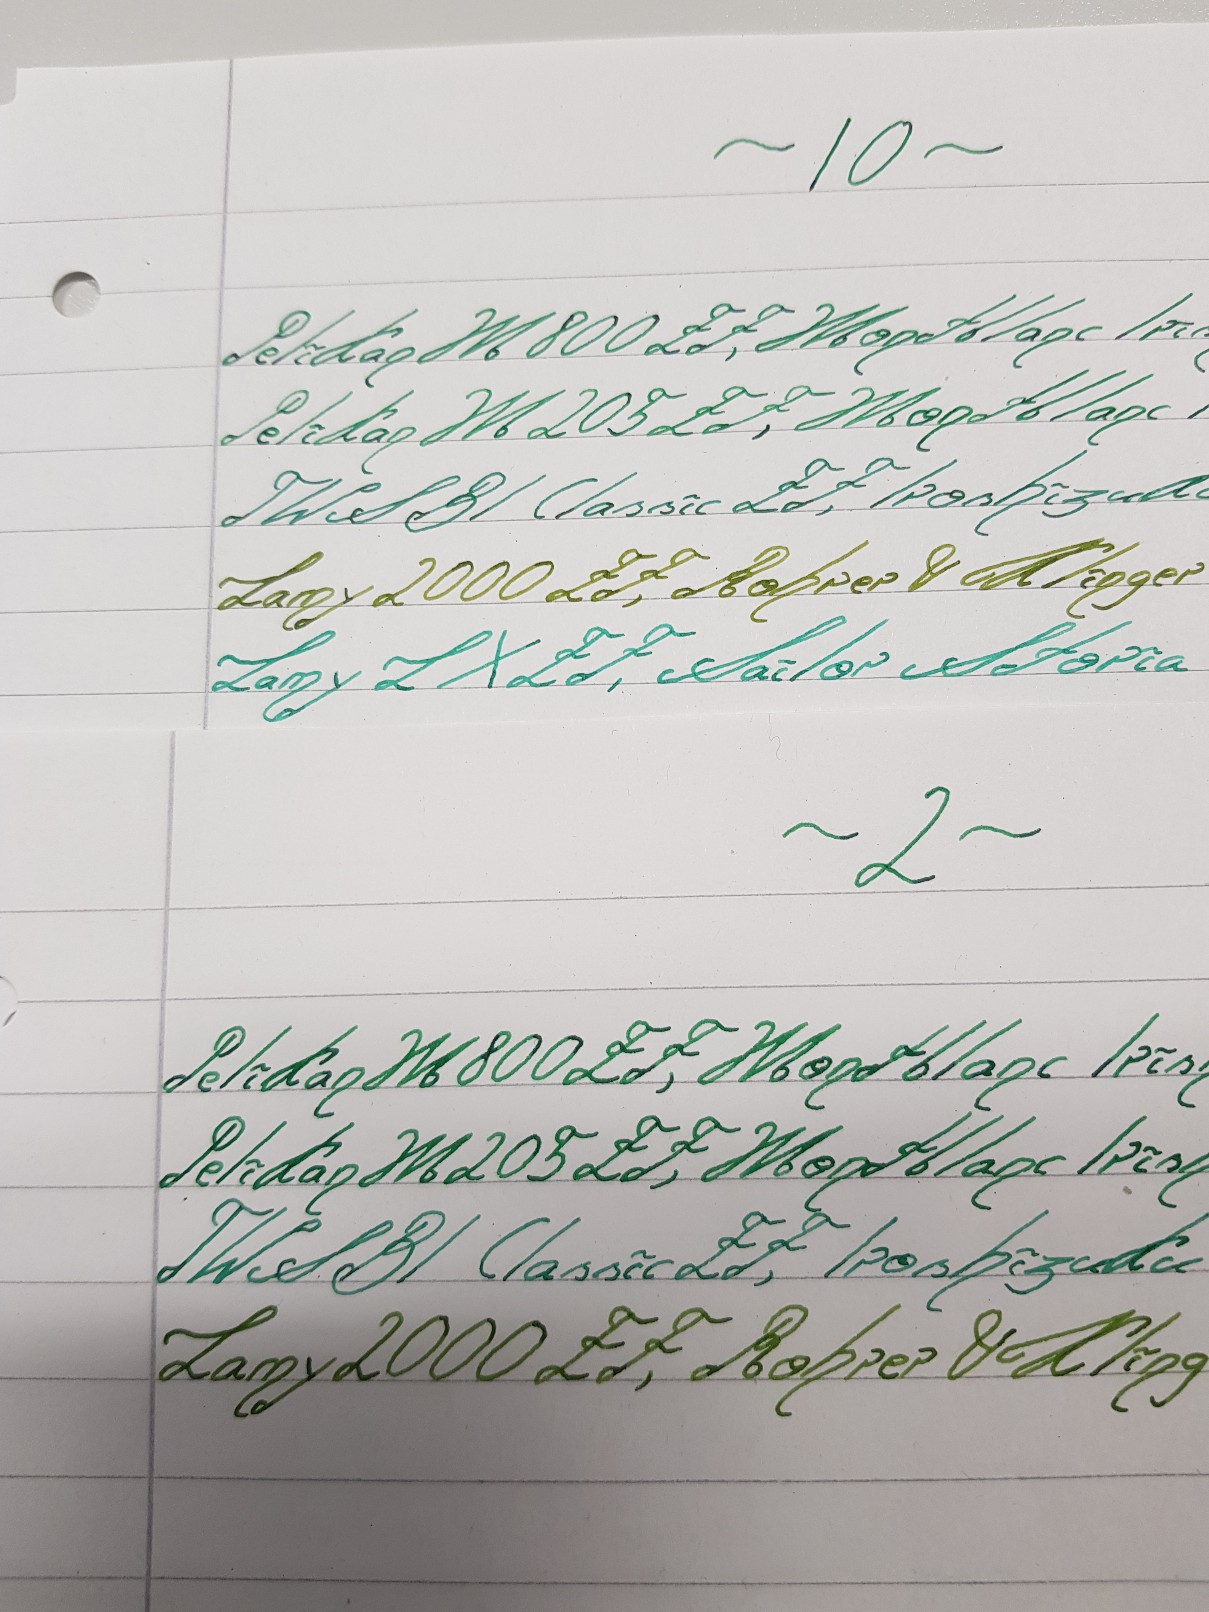 ~10~
Pelikan M800 EF, Montblanc Iris
Pelikan M205 EF, Montblanc I
TWSBI Classic EF, Iroshizuku
Lamy 2000 EF, Rohrer & Klinger
Lamy LX EF, Sailor Storia
~2~
Pelikan M800 EF, Montblanc Irish
Pelikan M205 EF, Montblanc Irish
TWSBI Classic EF, Iroshizuku
Lamy 2000 EF, Rohrer & Kling